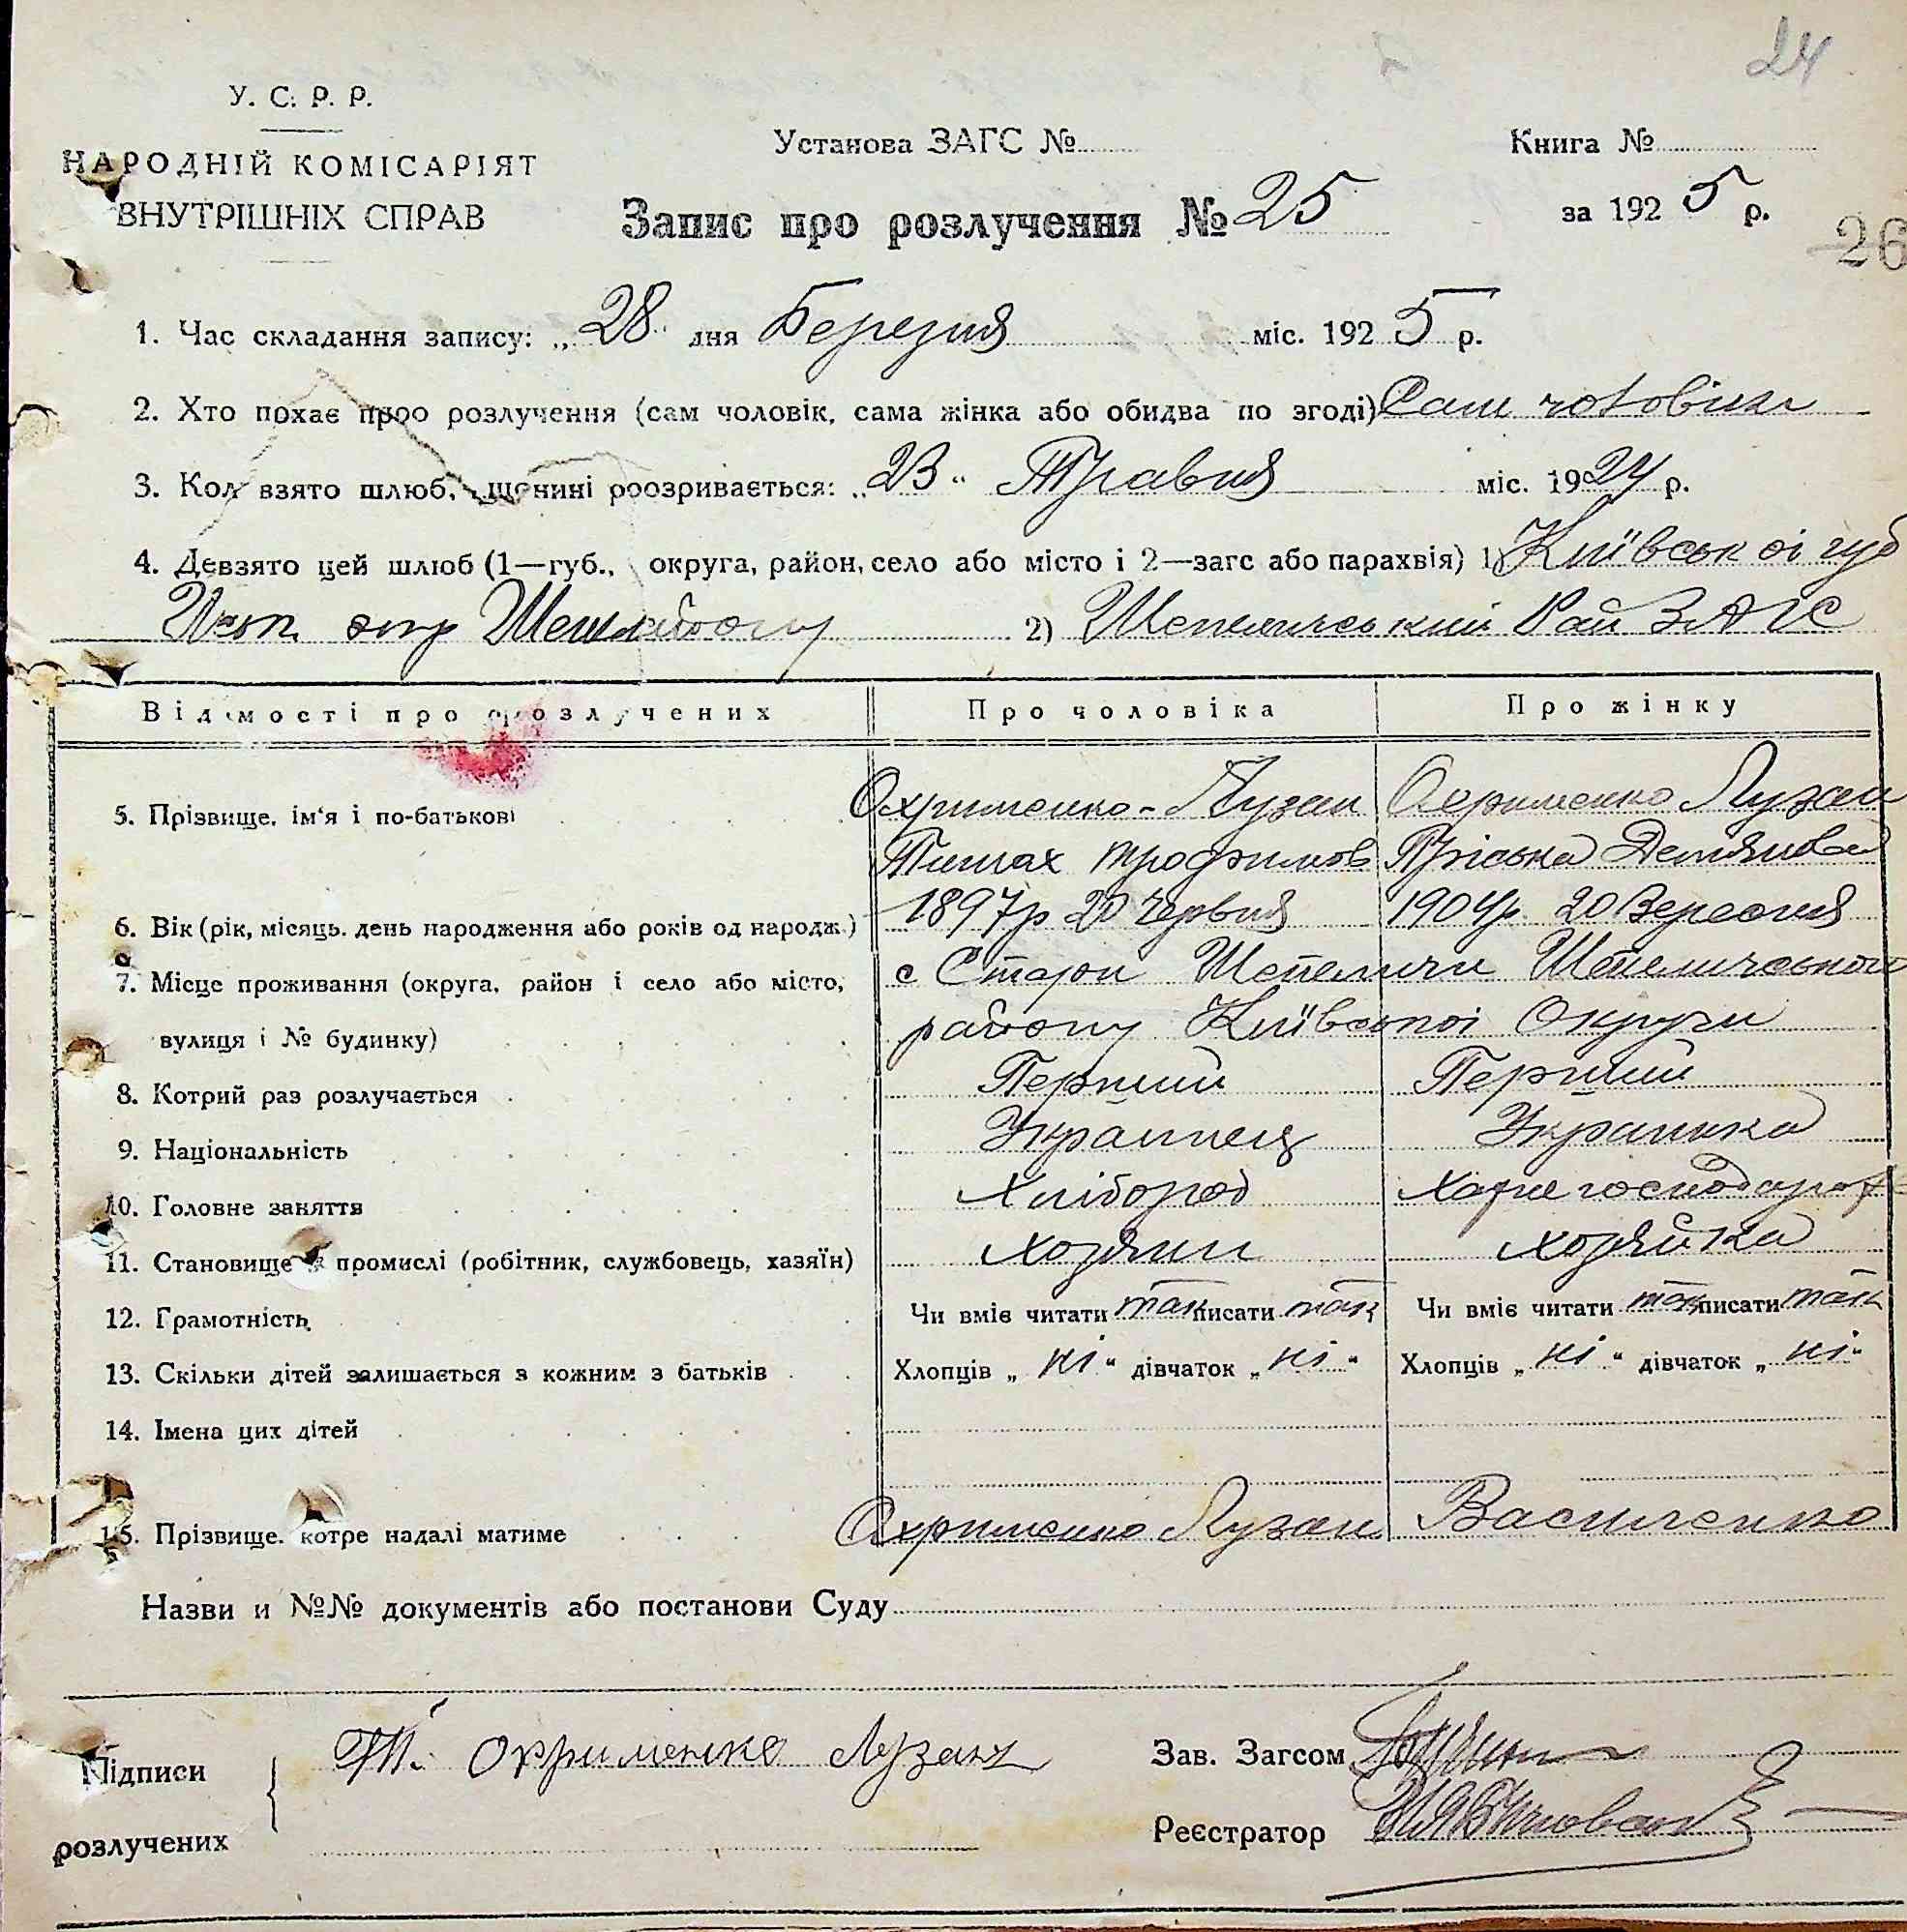 24
У. С. Р. Р.
НАРОДНІЙ КОМІСАРІЯТ
ВНУТРІШНІХ СПРАВ
Установа ЗАГС №
Книга №
Запис про розлучення № 25
за 1925 р.
26
1. Час складання запису: „28" дня Березня міс. 1925 р.
2. Хто похає проо розлучення (сам чоловік, сама жінка або обидва по згоді) Сам чоловік
3. Кол взято шлюб, щонині роозривається: „23" Травня міс. 1924 р.
4. Девзято цей шлюб (1—губ., округа, район, село або місто і 2—загс або парахвія) 1) Київськоі губ
окр 2) Шепеличський Рай ЗАГС
Відомості про розлучених Про чоловіка Про жінку
5. Прізвище, ім'я і по-батькові Охрименко-Лузан Охрименко Лузан
Тимах Трофимов Пріська Демянова
6. Вік (рік, місяць. день народження або років од народж.) 1897р 20 Червня 1904р. 20 Вересня
7. Місце проживання (округа, район і село або місто, с Стари Шепеличи Шепеличського
вулиця і № будинку) району Київськоі Округи
8. Котрий раз розлучається Перший Перший
9. Національність Украинец Украинка
10. Головне заняття Хлібороб Хатне господар
11. Становище в промислі (робітник, службовець, хазяїн) Хозяин хозяйка
12. Грамотність Чи вміє читати так писати так Чи вміє читати так писати так
13. Скільки дітей залишається з кожним з батьків Хлопців „ні" дівчаток „ні" Хлопців „ні" дівчаток „ні"
14. Імена цих дітей
15. Прізвище. котре надалі матиме Охрименко Лузан Василенко
Назви и №№ документів або постанови Суду
Підписи Т. Охрименко Лузан Зав. Загсом
розлучених Реєстратор